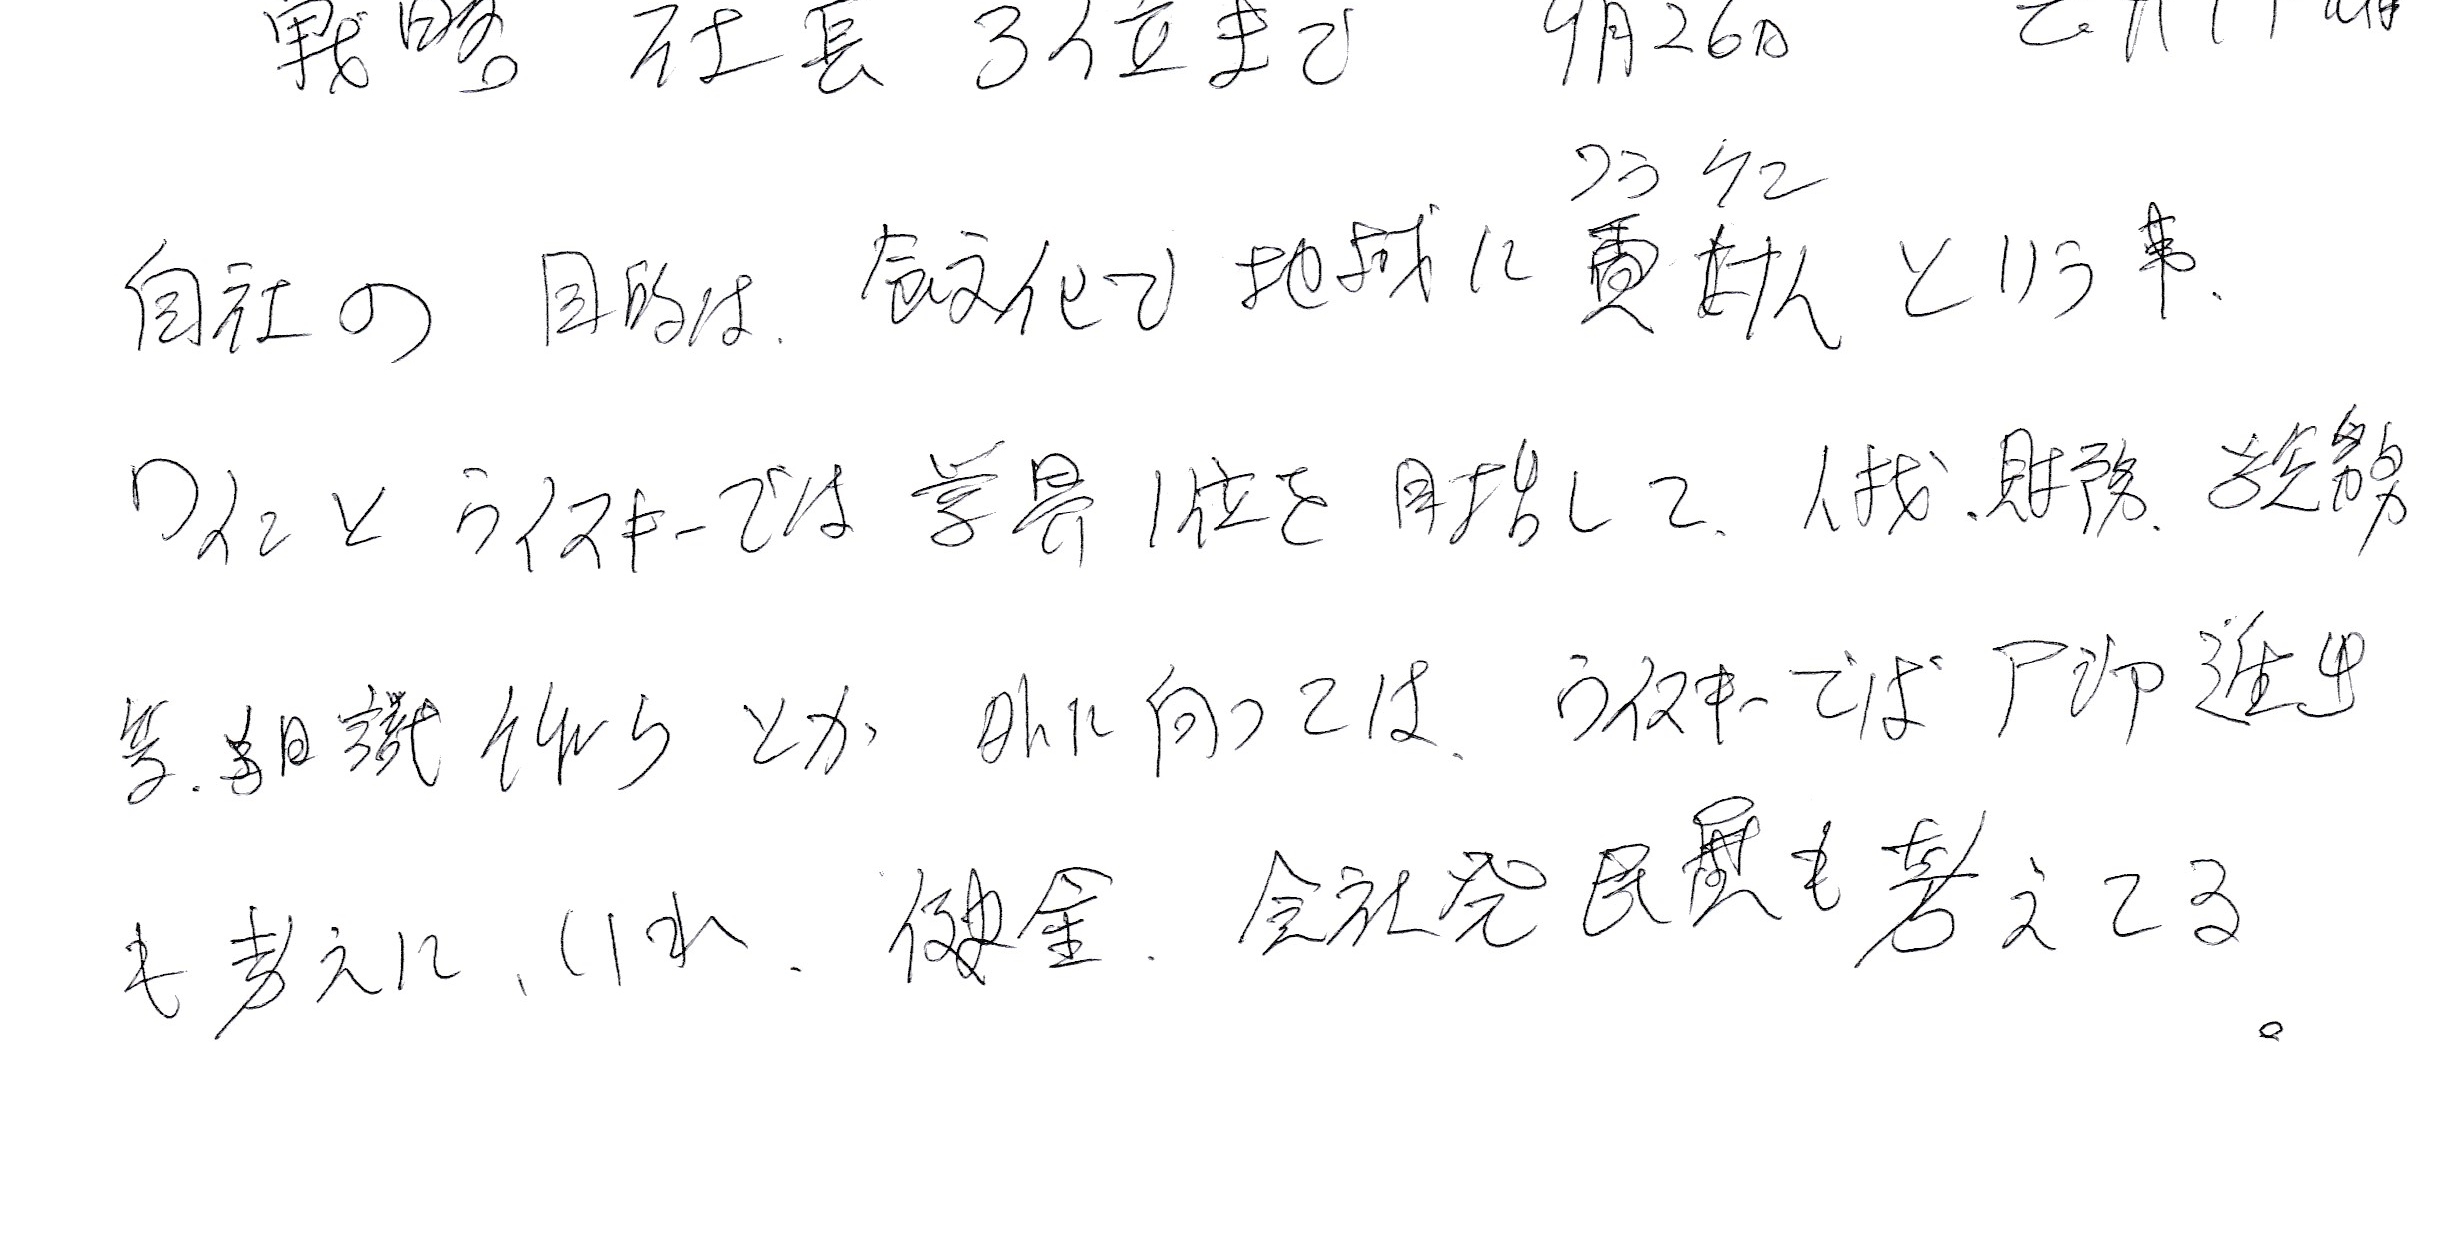 戦略 社長 3位まで 9月26日
コウケン
自社の 目的は、食文化で地域に貢献という事、
ワインとウイスキーでは 1位を 目指して、人材、財務、
等、組織作りとか 外に向っては、ウイスキーでは 進出
も考えに、いれ、 会社発展も考えてる。